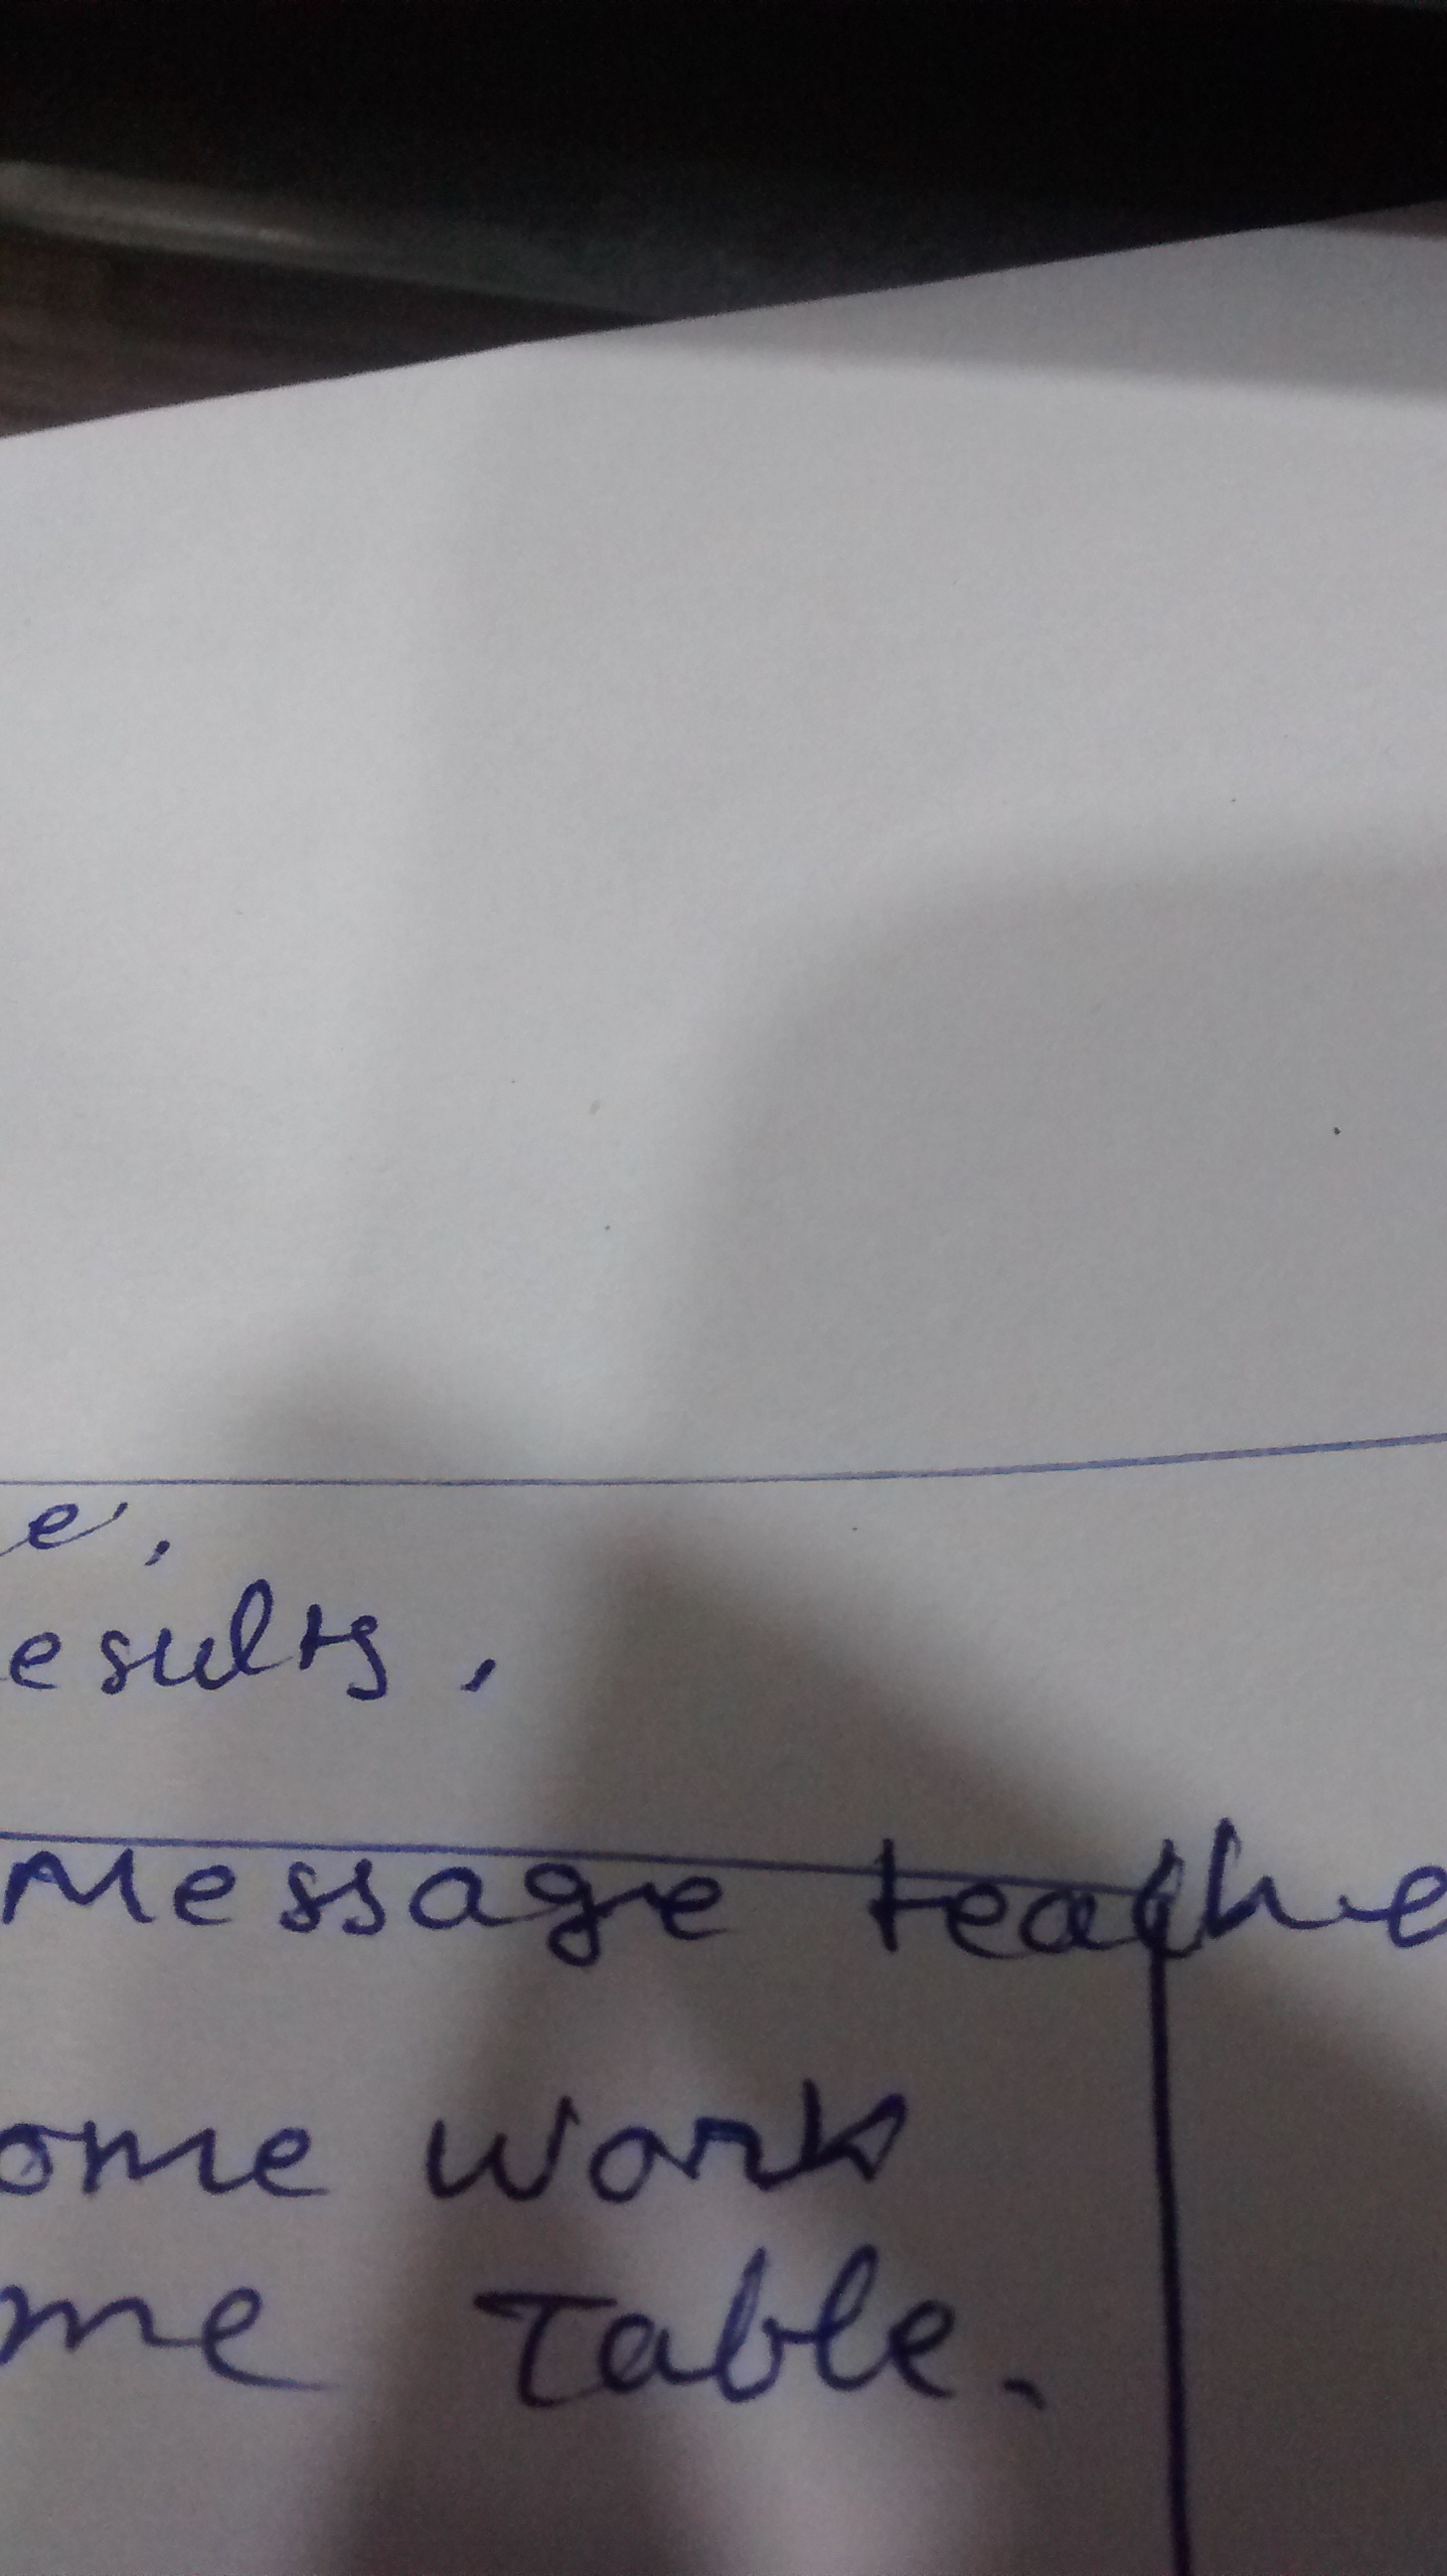 e.
esults.
Message teache
ome work
me Table.